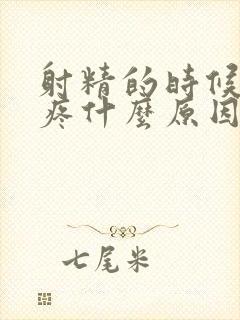 射精的時候
疼什麼原因
七尾米